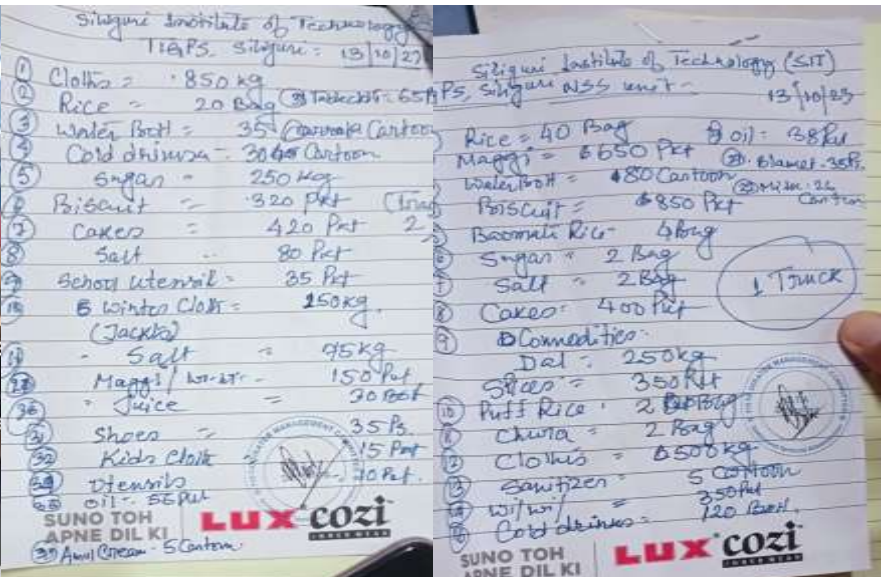 Siliguri Institute of Technology
TIGPS, Siliguri = 13/10/23
① Cloths = 850 kg
② Rice = 20 Bag
③ Water Bott = 35 Cartoon
④ Cold drinks = Cartoon
⑤ Sugar = 250 kg
⑥ Biscuit = 320 Pkt
⑦ Cakes = 420 Pkt
⑧ Salt 80 Pkt
School Utensil = 35 Pkt
Winter Cloth = 150 kg.
(Jackts)
Salt = 95 kg
Maggi / 150 Pkt
" Juice =
Shoes = 35 Ps.
Kids Cloth 15 Pkt
Utensils 10 Pkt.
oil - 55 Pkt
SUNO TOH
APNE DIL KI
LUX cozi
INNERWEAR
Amul Cream - 5 Cartoon
Siliguri Institute of Technology (SIT)
Siliguri NSS unit -
13/10/23
Rice = 40 Bag oil = 38 Pkt
Maggi = 650 Pkt
Water Bott = 80 Cartoon
Biscuit = 850 Pkt
Basmati Rice 4 Bag
Sugar = 2 Bag
Salt = 2 Bag
1 Truck
⑧ Cakes = 400 Pkt
⑨ Commedities -
Dal = 250 kg
Spices = 350 Pkt
⑩ Puff Rice 2 Bag
Chura = 2 Bag
⑫ Cloths = 500 kg
⑬ Sanitizer = 5 Cartoon
350 Pkt
Cold drinks = 120 Bott.
SUNO TOH
APNE DIL KI
LUX cozi
INNERWEAR